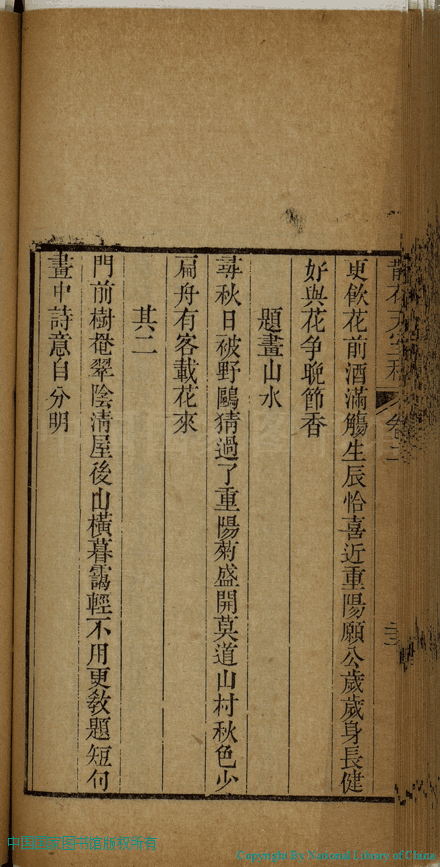 更飲花前酒滿觴生辰恰喜近重陽願公歲歲身長健
好與花争晚節香
題畫山水
尋秋日被野鷗猜過了重陽菊盛開莫道山村秋色少
扁舟有客載花來
其二
門前樹罨翠陰清屋後山橫暮靄輕不用更敎題短句
畫中詩意自分明
中国国家图书馆版权所有
Copyright By National Library of China